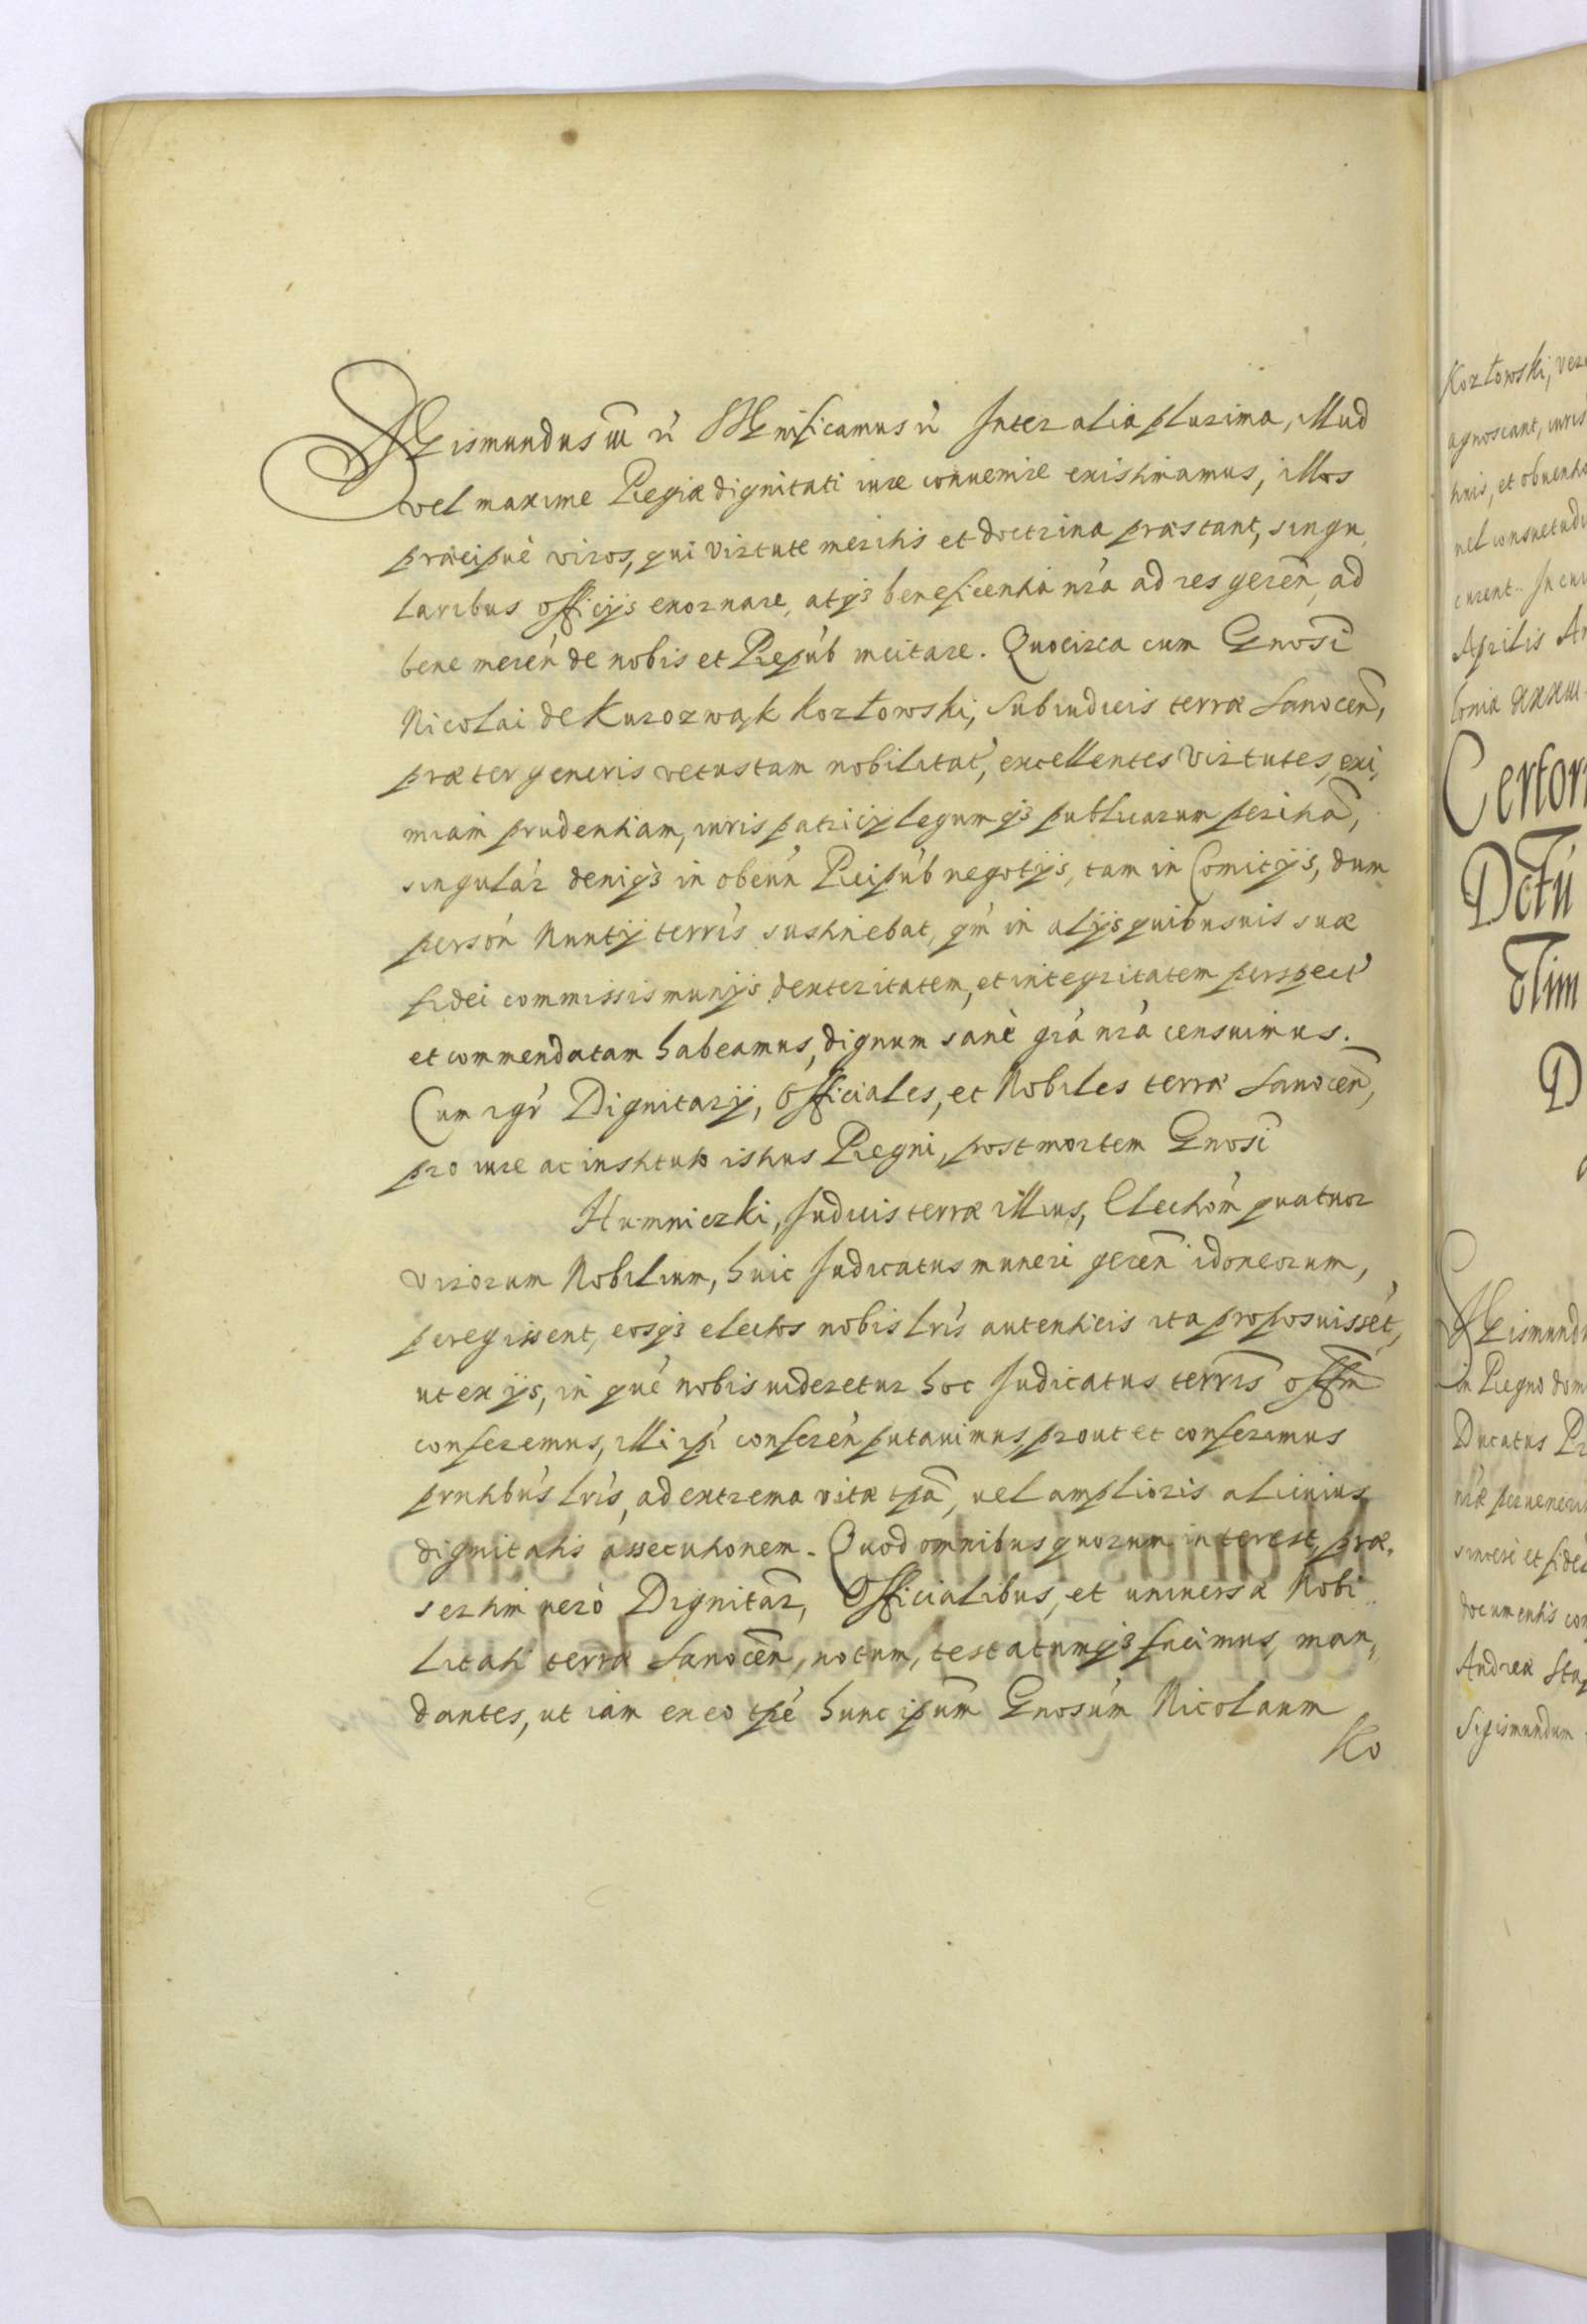 Sigismundus III etc Significamus etc Inter alia plurima, illud
vel maxime Regiæ dignitati iure conuenire existimamus, illos
præcipuè viros, qui virtute meritis et doctrina præstant, singu,
laribus officijs exornare, atqз beneficentia nr̃a ad res geren̄, ad
bene meren̄ de nobis et Repub incitare. Quocirca cum Gnosi
Nicolai de Kurozwąk Kozłowski, Subiudicis terræ Sanocen̄,
præter generis vetustam nobilitat', excellentes virtutes, exi,
miam prudentiam, iuris patricij legumqз publicarum peritiā,
singular deniqз in obeun̄ Reipub negotijs, tam in Comitijs, dum
person Nuntij terr̃is sustinebat, qm̄ in alijs quibusuis suæ
fidei commissis munijs dexteritatem, et integritatem perspect'
et commendatam habeamus, dignum sanè gr̃a nr̃a censuimus.
Cum igr̃ Dignitarij, Officiales, et Nobiles terræ Sanocen̄,
pro iure ac instituto istius Regni, post mortem Gnosi
Humniczki, Judicis terræ illius, Electiom̄ quatuor
virorum Nobilium, huic Judicatus muneri geren̄ idoneorum,
peregissent, eosqз electos nobis lr̃is autenticis ita proposuissēt,
ut ex ijs, in quē nobis uideretur hoc Judicatus terr̃is offm̄
conferemus, illi ip̃i conferen̄ putauimus, prout et conferimus
pr̃ntibus lr̃is, ad extrema vitæ tp̃a, uel amplioris alicuius
dignitatis assecutionem. Quod omnibus quorum interest, præ,
sertim uerò Dignitar̃, Officialibus, et uniuersæ Nobi
litati terræ Sanocen̄, notum, testatumqз facimus, man,
dantes, ut iam ex eo tp̃e hunc ipsum Gnosum Nicolaum
Ko
Kozłowski, ver
agnoscant, iuris
tinis, et obuentio
uel consuetudi
curent. In cui
Aprilis An
loniæ XXXIII
Certor
Dctū
Etim
D
Sigismund
in Regno dom
Ducatus Pr
nr̃æ peruenerit
sincerè et fidel
documentis com
Andreæ Stap
Sigismundum